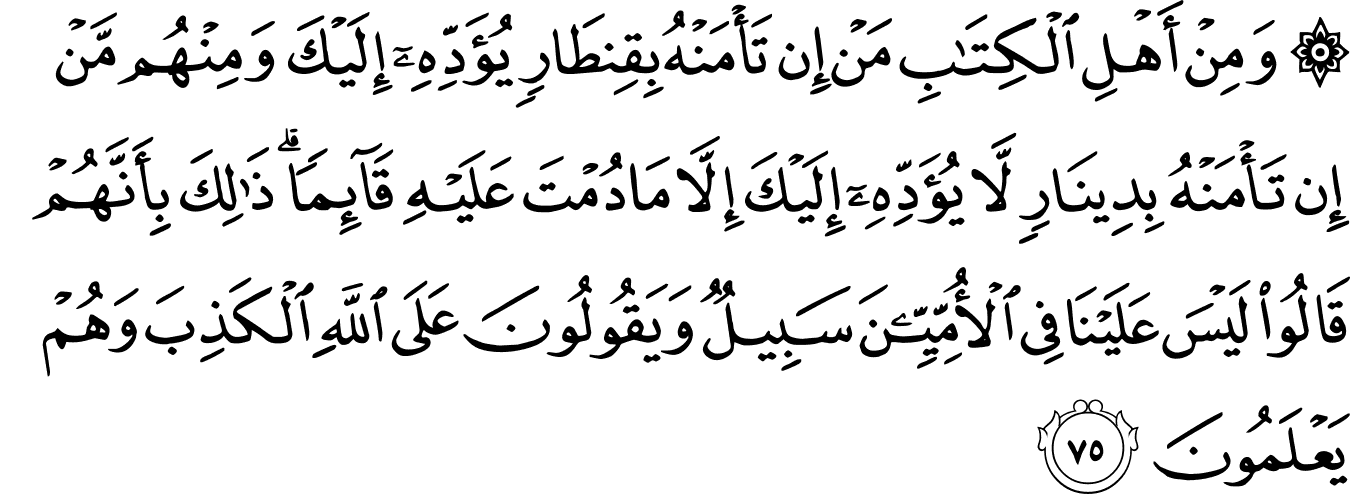 ۞ وَمِنْ أَهْلِ ٱلْكِتَـٰبِ مَنْ إِن تَأْمَنْهُ بِقِنطَارٍ يُؤَدِّهِۦٓ إِلَيْكَ وَمِنْهُم مَّنْ
إِن تَأْمَنْهُ بِدِينَارٍ لَّا يُؤَدِّهِۦٓ إِلَيْكَ إِلَّا مَا دُمْتَ عَلَيْهِ قَآئِمًا ۗ ذَٰلِكَ بِأَنَّهُمْ
قَالُوا۟ لَيْسَ عَلَيْنَا فِى ٱلْأُمِّيِّـۧنَ سَبِيلٌ وَيَقُولُونَ عَلَى ٱللَّهِ ٱلْكَذِبَ وَهُمْ
يَعْلَمُونَ ٧٥